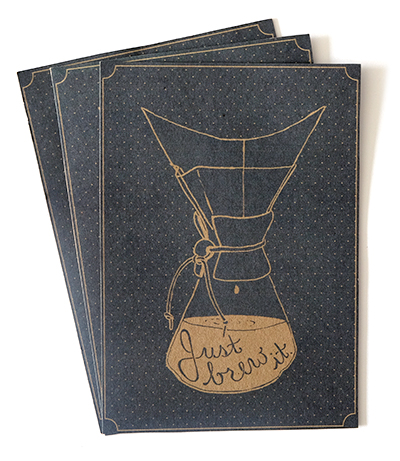 Just
brew it.